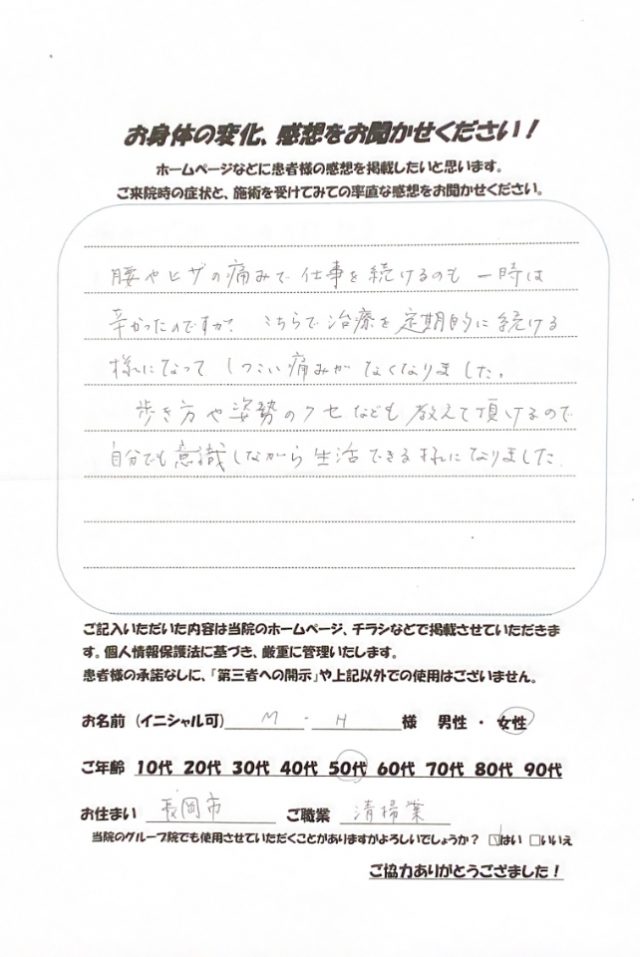 お身体の変化、感想をお聞かせください！
ホームページなどに患者様の感想を掲載したいと思います。
ご来院時の症状と、施術を受けてみての率直な感想をお聞かせください。
腰やヒザの痛みで仕事を続けるのも一時は
辛かったのですが、こちらで治療を定期的に続ける
様になってしつこい痛みがなくなりました。
歩き方や姿勢のクセなども教えて頂けるので
自分でも意識しながら生活できる様になりました。
ご記入いただいた内容は当院のホームページ、チラシなどで掲載させていただきま
す。個人情報保護法に基づき、厳重に管理いたします。
患者様の承諾なしに、「第三者への開示」や上記以外での使用はございません。
お名前（イニシャル可） M・H 様 男性・女性
ご年齢 10代 20代 30代 40代 50代 60代 70代 80代 90代
お住まい 長岡市 ご職業 清掃業
当院のグループ院でも使用させていただくことがありますがよろしいでしょうか？ ☑はい □いいえ
ご協力ありがとうございました！